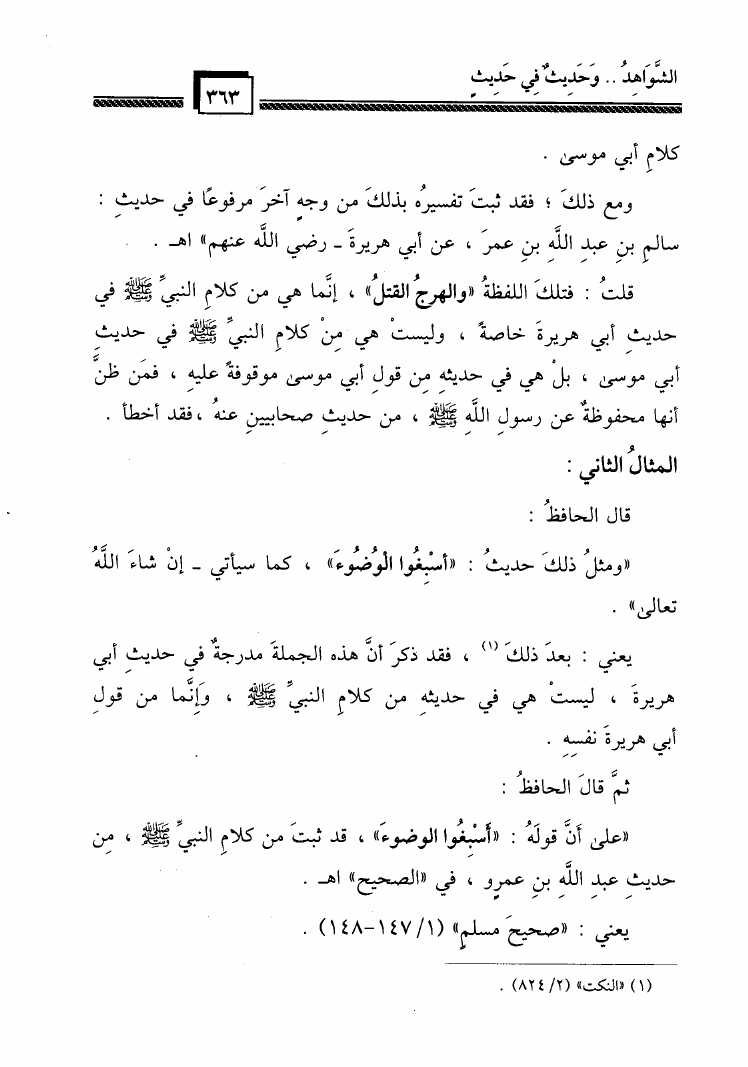 الشَّوَاهِدُ .. وَحَدِيثٌ فِي حَدِيثٍ
٣٦٣
كلامِ أبي موسىٰ .
ومع ذلكَ ؛ فقد ثبتَ تفسيرُه بذلكَ من وجهٍ آخرَ مرفوعًا في حديثِ :
سالمِ بنِ عبدِ اللَّهِ بنِ عمرَ ، عن أبي هريرةَ ـ رضي اللَّه عنهم» اهـ .
قلتُ : فتلكَ اللفظةُ «والهرجُ القتلُ» ، إنَّما هي من كلامِ النبيِّ ﷺ في
حديثِ أبي هريرةَ خاصةً ، وليستْ هي مِنْ كلامِ النبيِّ ﷺ في حديثِ
أبي موسىٰ ، بلْ هي في حديثِهِ مِن قولِ أبي موسىٰ موقوفةً عليهِ ، فمَن ظنَّ
أنها محفوظةٌ عن رسولِ اللَّهِ ﷺ ، من حديثِ صحابيينِ عنهُ ،فقد أخطأ .
المثالُ الثاني :
قال الحافظُ :
«ومثلُ ذلكَ حديثُ : «أسْبِغُوا الْوُضُوءَ» ، كما سيأتي ـ إنْ شاءَ اللَّهُ
تعالىٰ» .
يعني : بعدَ ذلكَ (١) ، فقد ذكرَ أنَّ هذه الجملةَ مدرجةٌ في حديثِ أبي
هريرةَ ، ليستْ هي في حديثِهِ من كلامِ النبيِّ ﷺ ، وَإنَّما من قولِ
أبي هريرةَ نفسِهِ .
ثمَّ قالَ الحافظُ :
«علىٰ أنَّ قولَهُ : «أَسْبِغُوا الوضوءَ» ، قد ثبتَ من كلامِ النبيِّ ﷺ ، مِن
حديثِ عبدِ اللَّهِ بنِ عمرٍو ، في «الصحيحِ» اهـ .
يعني : «صحيحَ مسلمٍ» (١/ ١٤٧-١٤٨) .
(١) «النكت» (٢/ ٨٢٤) .